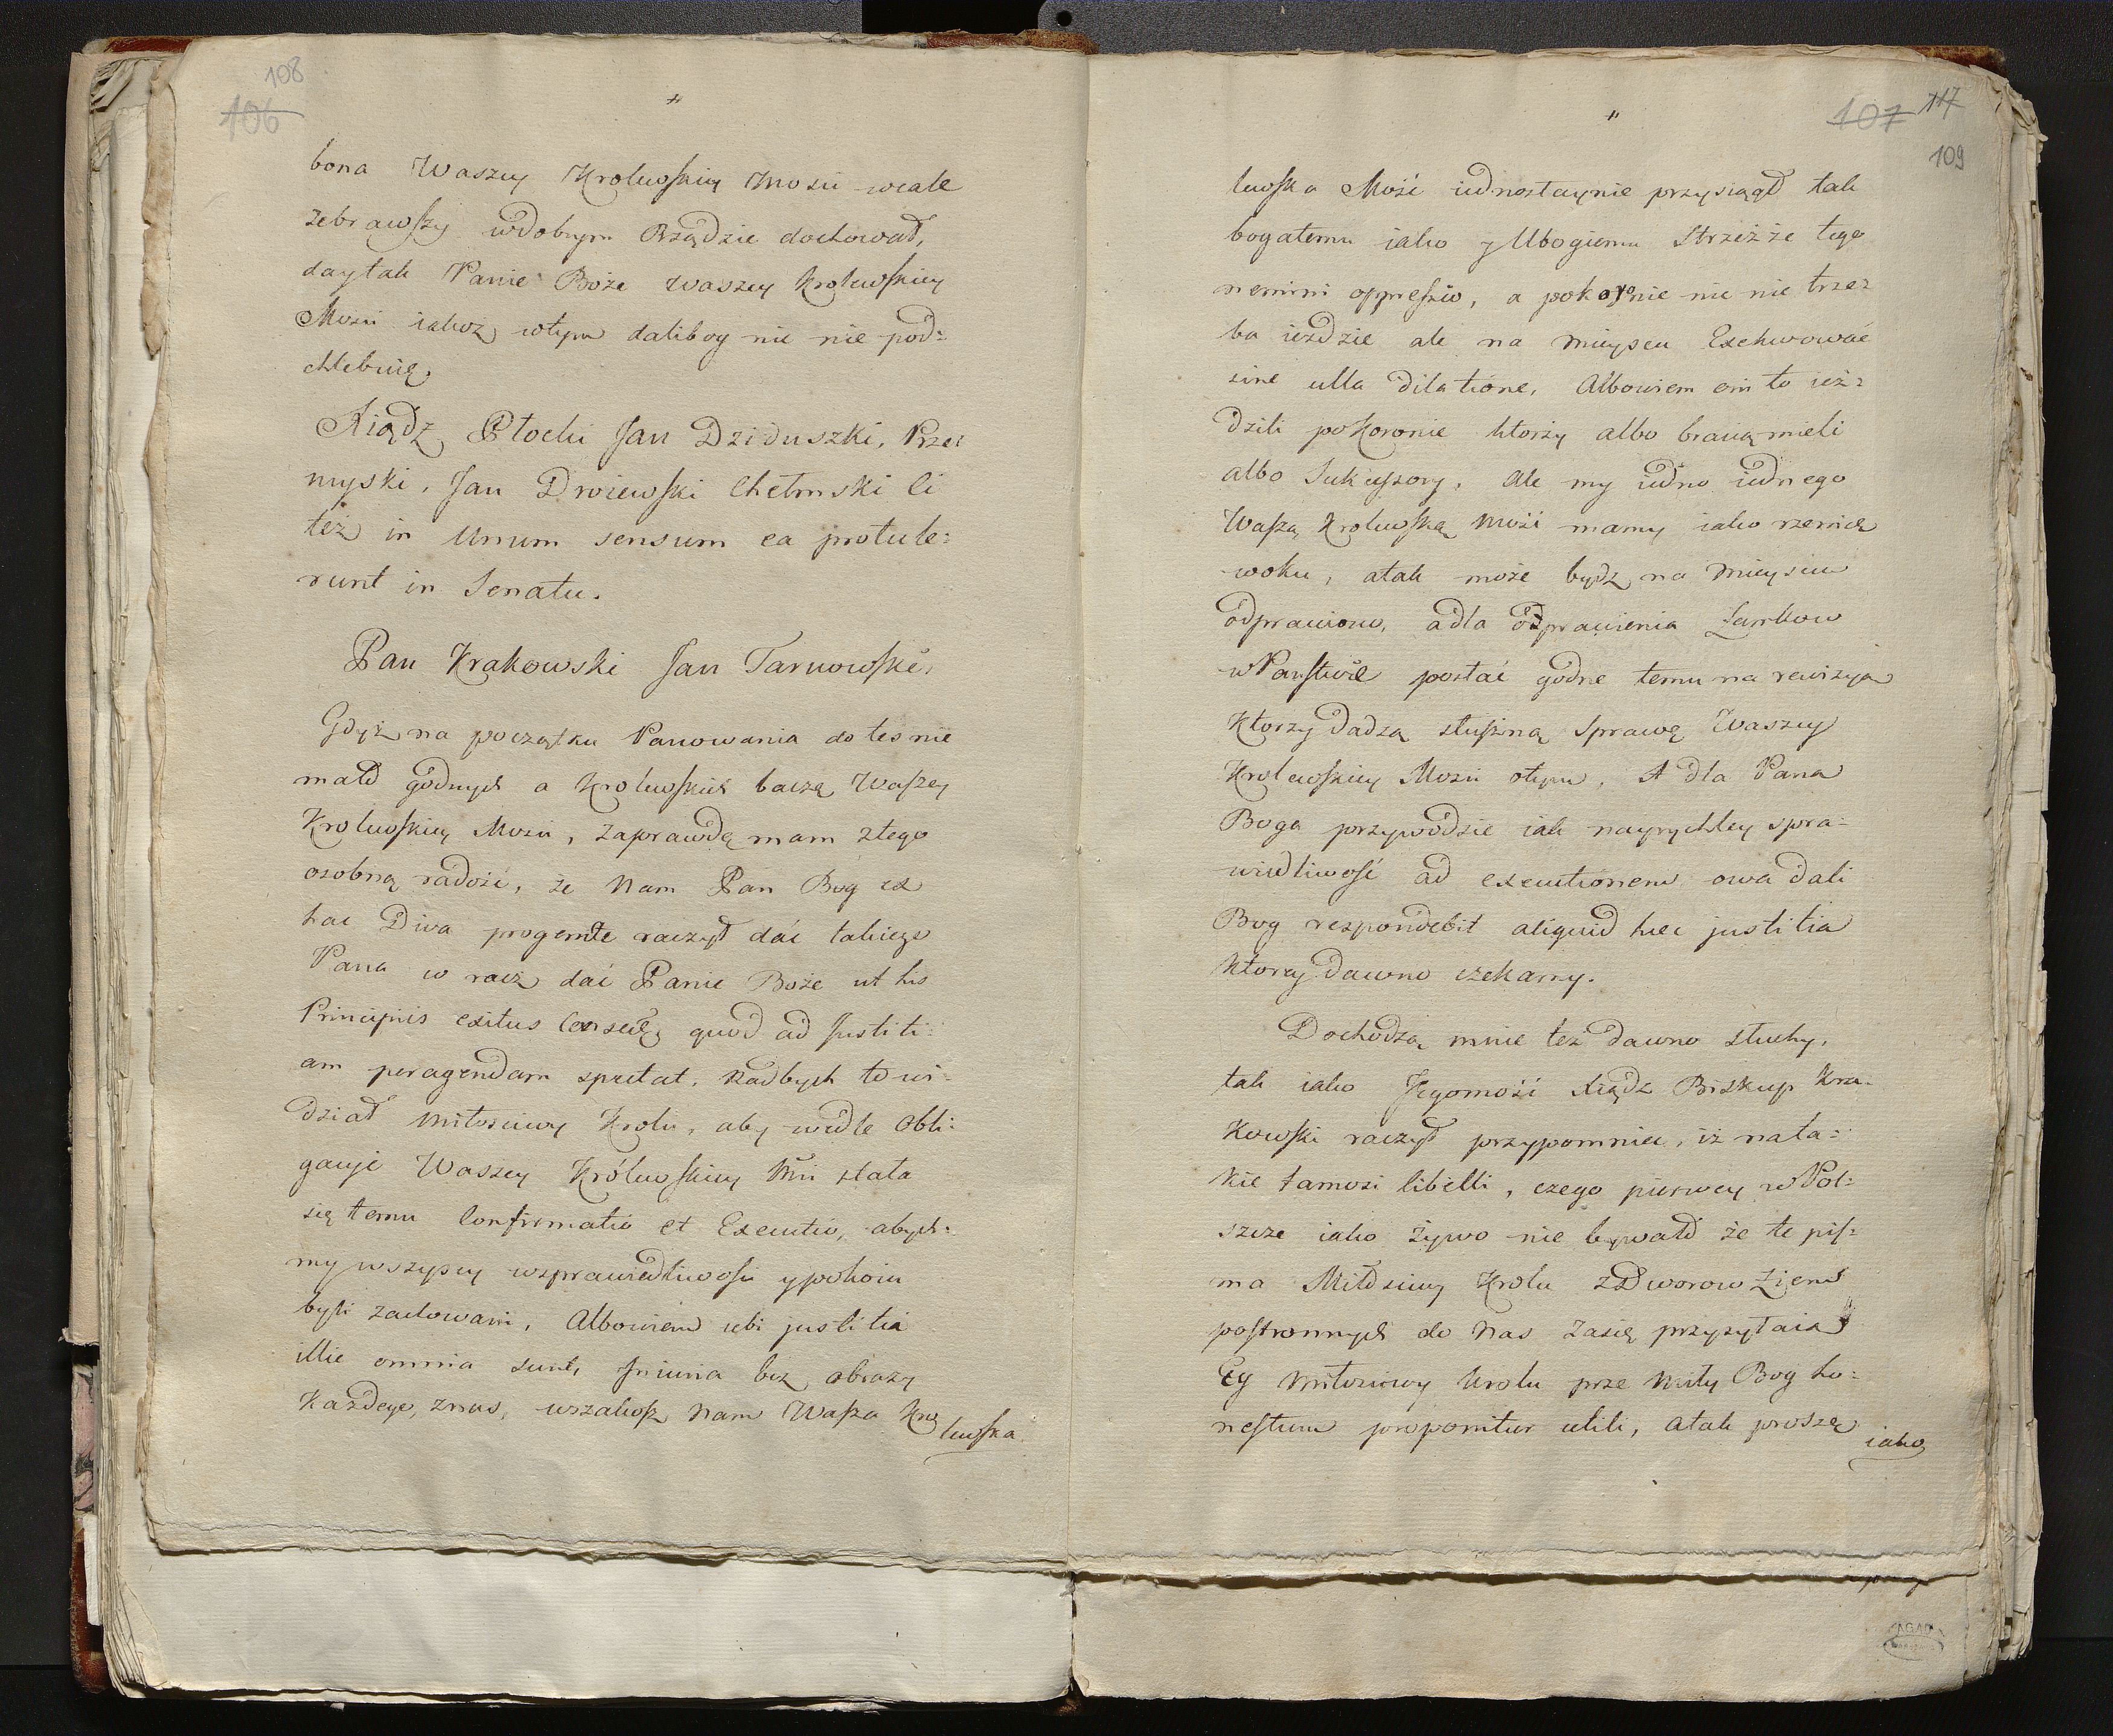 108
106
bona Waszey Krolewskiey Mosci wcale
zebrawszy wdobrym Rządzie dochował,
daytak Panie Boże Waszey Krolewskiey
Mosci iakoż wtym dalibog nic nie pod=
chlebuię.
Xiądz Płocki Jan Dziduszki, Prze=
myski, Jan Drojewski Chełmski Ci
też in Unum sensum ea protule=
runt in Senatu.
Pan Krakowski Jan Tarnowski,
Gdyż na początku Panowania do tes nie
mało godnych a Krolewskich baczę Waszey
Krolewskiey Mosci, zaprawdę mam ztego
osobną radość, że Nam Pan Bog ex
hac Diva progenie raczył dać takiego
Pana w racz dać Panie Boże ut his
Principiis exitus quod ad Justiti=
am peragendam spectat. Radbych to wi=
dział Miłosciwy Krolu, aby wedle obli=
gacyi Waszey Królewskiey Mci stała
się temu Confirmatio et Executio, abych=
my wszyscy wsprawiedliwosci ypokoiu
byli zachowani, Albowiem ubi justitia
illic omnia sunt, bez obrazy
każdego, znas, wszakosz nam Wasza Kro
lewska
107 117
109
lewska Mość iednostaynie przysiągł tak
bogatemu iako y Ubogiemu Strzeż że tego
nemini oppressio, a pokoronie nic nie trze=
ba iezdzic ale na mieyscu Exekwować
sine ulla dilatione, Albowiem oni to ież=
dzili poKoronie ktorzy albo bracią mieli
albo Sukcessory, ale my iedno iednego
Waszą Krolewską Mość mamy iako rzenicę
woku, atak może bydz na mieyscu
odprawiono, adla odprawienia Zamkow
wPanstwie postać godne temu na rewizyą
Ktorzy dadzą słuszną Sprawę Waszey
Krolewskiey Mosci otym, A dla Pana
Boga przywodzie iak nayrychley spra=
wiedliwość ad executionem owa dali
Bog respondebit aliquid haec justitia
Ktorey dawno czekamy.
Dochodzą mnie też dawno słuchy,
tak iako Jegomość Xiądz Biskup Kra=
kowski raczył przypomniec, iż nata=
kie famosi libelli, czego pierwey wPol=
szcze iako żywo nie bywało że te pis=
ma Miłosciwy Krolu zDworow Ziem
postronnych do Nas zasię przysyłaią
Ey Miłosciwy Krolu prze Miły Bog ho=
nestum proponitur utili, atak proszę
iako
AGAD